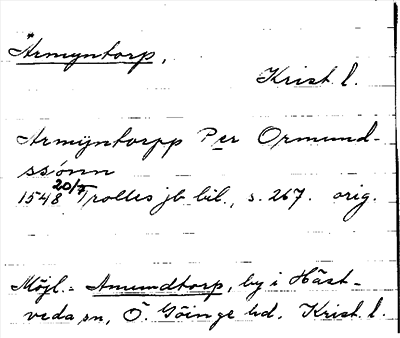 *Armyntorp,
Krist. l.
Armÿntorpp Per Ormund-
ssönn
1548 20/7 Trolles jb bil., s. 267. orig.
Möjl. = Amundtorp, by i Häst-
veda sn, Ö. Göinge hd. Krist. l.